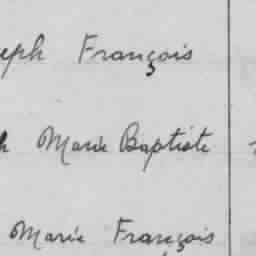 eph François
h Marie Baptiste
Marie François